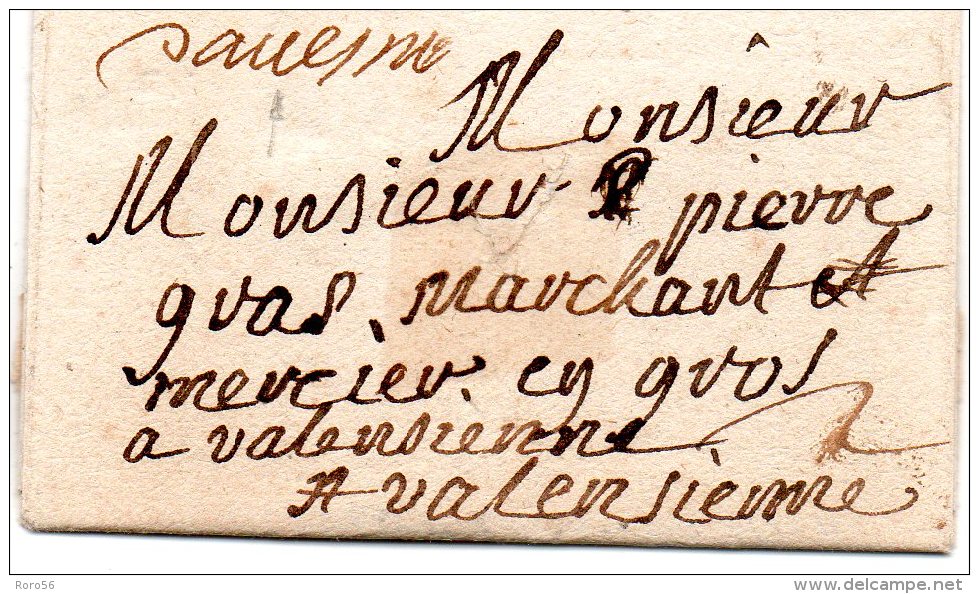 davesne
Monsieur
Monsieur pierre
gras, marchant et
mercier en gros
a valensienne
A valensienne
Roro56
www.delcampe.net